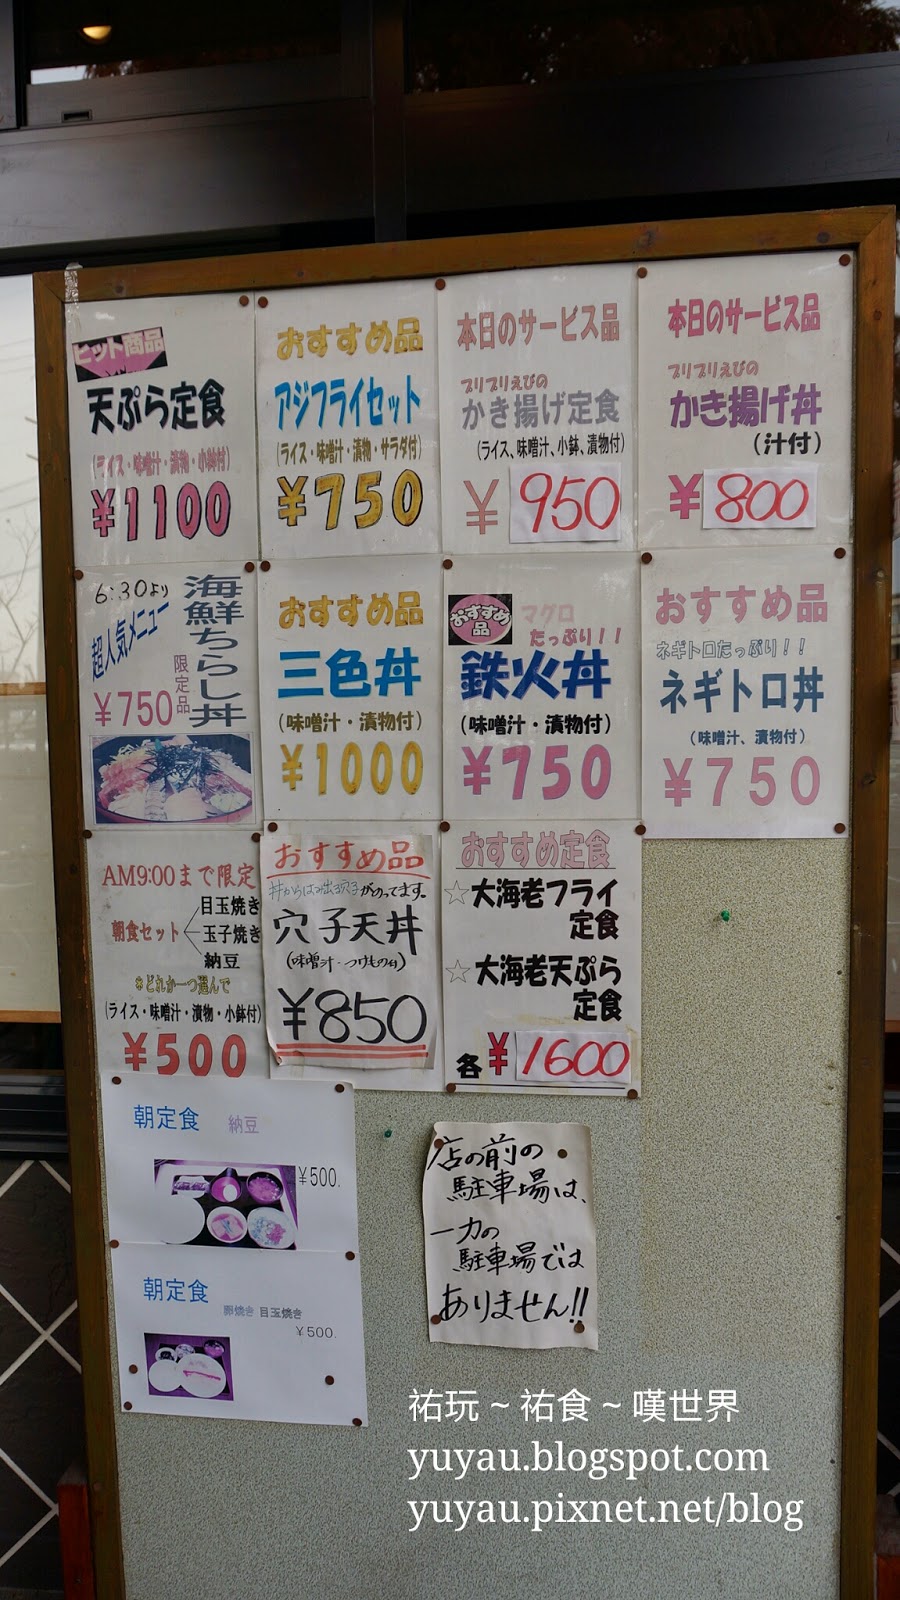 ヒット商品
天ぷら定食
(ライス・味噌汁・漬物・小鉢付)
¥1100
おすすめ品
アジフライセット
(ライス・味噌汁・漬物・サラダ付)
¥750
本日のサービス品
プリプリえびの
かき揚げ定食
(ライス、味噌汁、小鉢、漬物付)
¥950
本日のサービス品
プリプリえびの
かき揚げ丼
(汁付)
¥800
6:30より
超人気メニュー
海鮮ちらし丼
限定品
¥750
おすすめ品
三色丼
(味噌汁・漬物付)
¥1000
おすすめ品
マグロ
たっぷり!!
鉄火丼
(味噌汁・漬物付)
¥750
おすすめ品
ネギトロたっぷり!!
ネギトロ丼
(味噌汁、漬物付)
¥750
AM9:00まで限定
朝食セット
目玉焼き
玉子焼き
納豆
*どれか一つ選んで
(ライス・味噌汁・漬物・小鉢付)
¥500
おすすめ品
丼からはみ出る穴子がのってます。
穴子天丼
(味噌汁・つけもの付)
¥850
おすすめ定食
☆大海老フライ
定食
☆大海老天ぷら
定食
各¥1600
朝定食 納豆
¥500.
朝定食
卵焼き 目玉焼き
¥500.
店の前の
駐車場は、
一力の
駐車場では
ありません!!
祐玩 ~ 祐食 ~ 嘆世界
yuyau.blogspot.com
yuyau.pixnet.net/blog